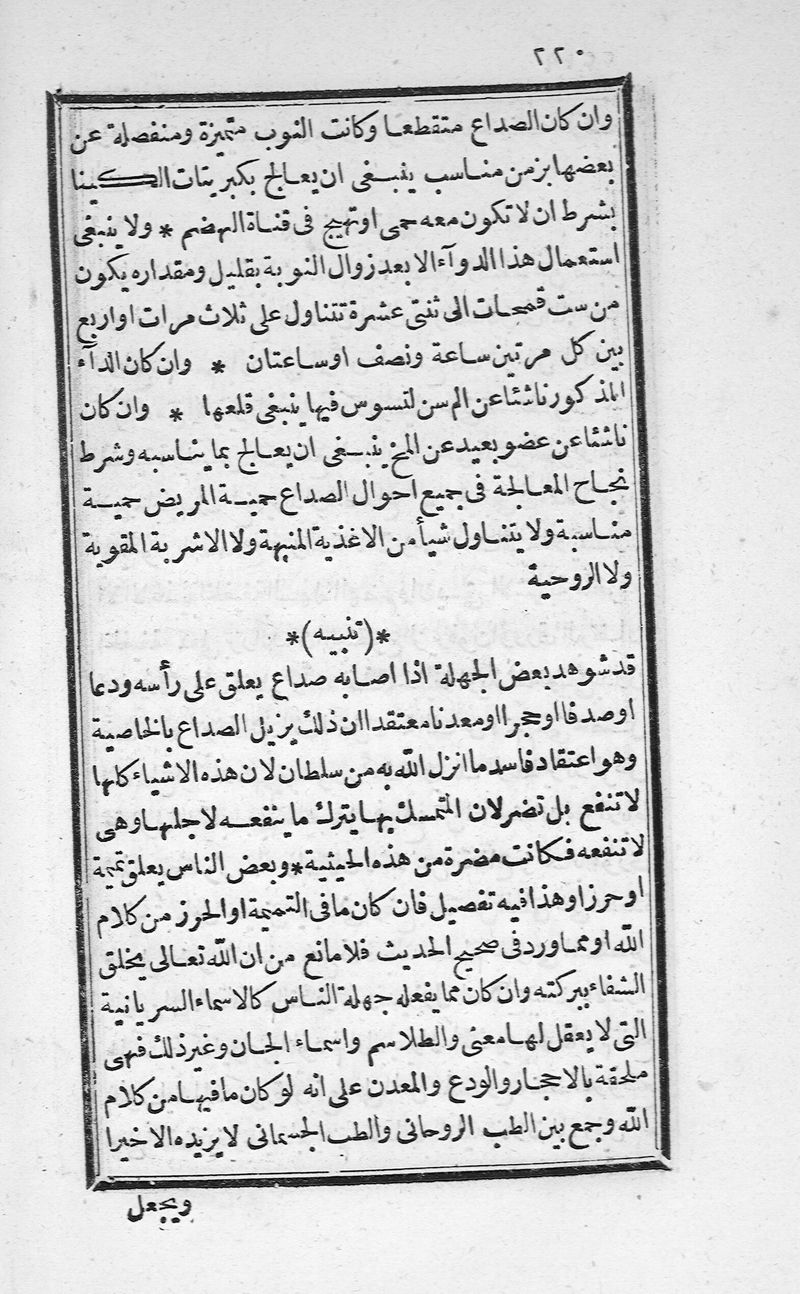 ٢٢٠
وان كان الصداع متقطعا وكانت النوب متميزة ومنفصلة عن
بعضها بزمن مناسب ينبغى ان يعالج بكبريتات الكينا
بشرط ان لا تكون معه حمى او تهيج فى قناة الهضم * ولا ينبغى
استعمال هذا الدوآء الا بعد زوال النوبة بقليل ومقداره يكون
من ست قمحات الى ثنتى عشرة تتناول على ثلاث مرات او اربع
بين كل مرتين ساعة ونصف او ساعتان * وان كان الدآء
المذكور ناشئا عن الم سن لتسوس فيها ينبغى قلعها * وان كان
ناشئا عن عضو بعيد عن المخ ينبغى ان يعالج بما يناسبه وشرط
نجاح المعالجة فى جميع احوال الصداع حمية المريض حمية
مناسبة ولا يتناول شيأ من الاغذية المنبهة ولا الاشربة المقوية
ولا الروحية
*(تنبيه)*
قد شوهد بعض الجهلة اذا اصابه صداع يعلق على رأسه ودعا
او صدفا او حجرا او معدنا معتقدا ان ذلك يزيل الصداع بالخاصية
وهو اعتقاد فاسد ما انزل الله به من سلطان لان هذه الاشياء كلها
لا تنفع بل تضر لان المتمسك بها يترك ما ينفعه لاجلها وهى
لا تنفعه فكانت مضرة من هذه الحيثية * وبعض الناس يعلق تميمة
او حرزا وهذا فيه تفصيل فان كان ما فى التميمة او الحرز من كلام
الله او مما ورد فى صحيح الحديث فلا مانع من ان الله تعالى يخلق
الشفاء ببركته وان كان مما يفعله جهلة الناس كالاسماء السريانية
التى لا يعقل لها معنى والطلاسم واسماء الجان وغير ذلك فهى
ملحقة بالاحجار والودع والمعدن على انه لو كان ما فيها من كلام
الله وجمع بين الطب الروحانى والطب الجسمانى لا يزيده الا خيرا
ويجعل